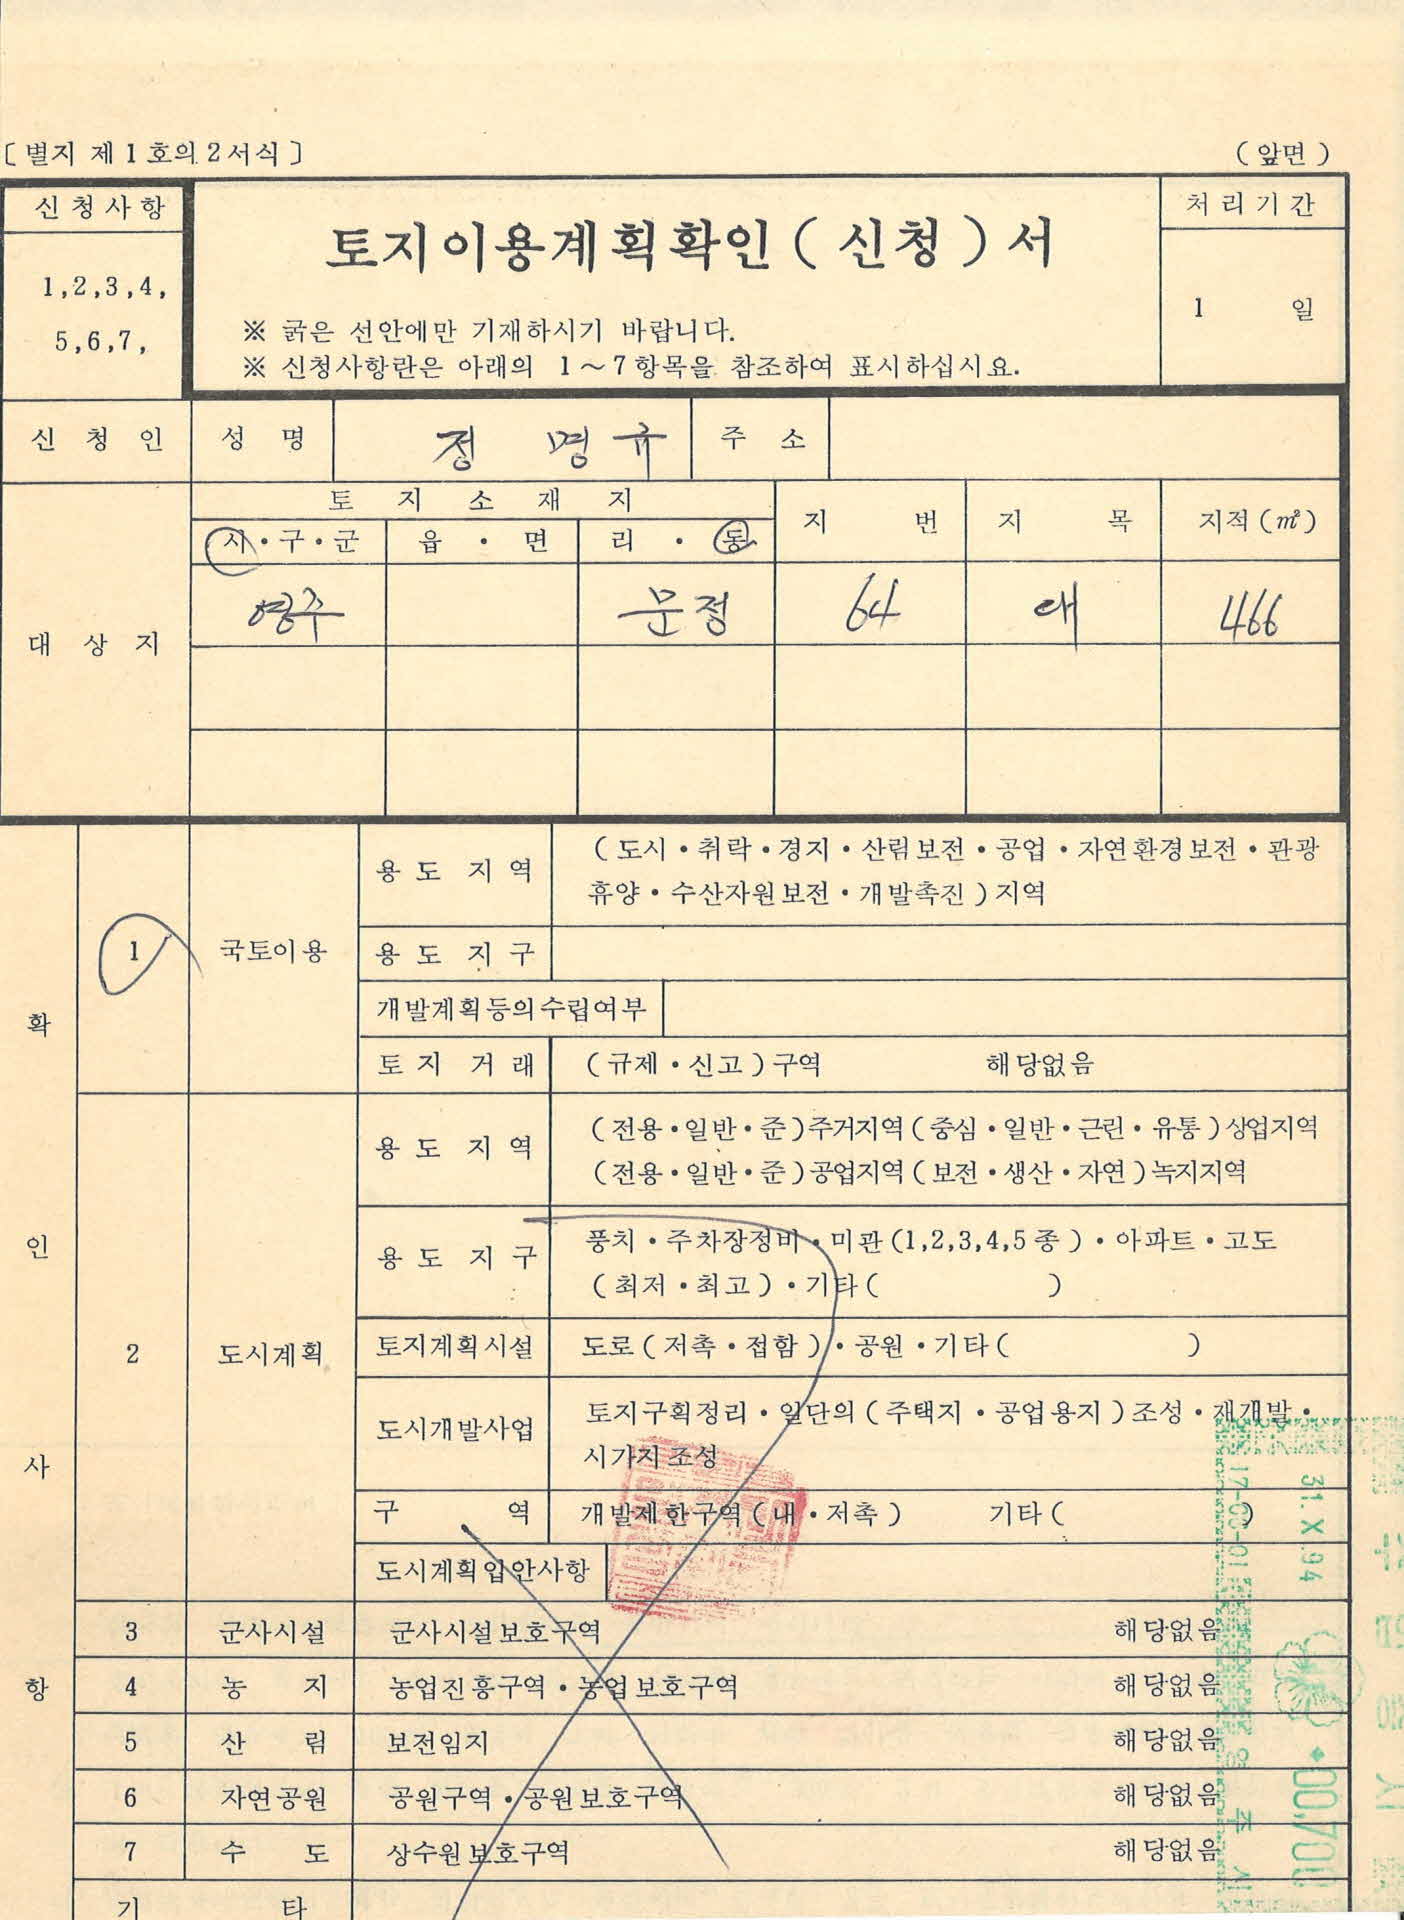 [ 별지 제 1 호의 2 서식 ]
( 앞면 )
신청사항
토지이용계획확인 ( 신청 ) 서
처리기간
1,2,3,4,
5,6,7,
※ 굵은 선안에만 기재하시기 바랍니다.
※ 신청사항란은 아래의 1～7 항목을 참조하여 표시하십시요.
1 일
신 청 인 성 명 정 명 규 주 소
토 지 소 재 지 지 번 지 목 지적 (㎡)
시・구・군 읍 ・ 면 리 ・ 동
대 상 지 영주 문정 64 대 466
확 인 사 항
1 국토이용
용 도 지 역 ( 도시・취락・경지・산림보전・공업・자연환경보전・관광
휴양・수산자원보전・개발촉진 ) 지역
용 도 지 구
개발계획등의수립여부
토 지 거 래 ( 규제・신고 ) 구역 해당없음
2 도시계획
용 도 지 역 ( 전용・일반・준 ) 주거지역 ( 중심・일반・근린・유통 ) 상업지역
( 전용・일반・준 ) 공업지역 ( 보전・생산・자연 ) 녹지지역
용 도 지 구 풍치・주차장정비・미관 (1,2,3,4,5 종 )・아파트・고도
( 최저・최고 )・기타 ( )
토지계획시설 도로 ( 저촉・접함 )・공원・기타 ( )
도시개발사업 토지구획정리・일단의 ( 주택지・공업용지 ) 조성・재개발・
시가지조성
구 역 개발제한구역 ( 내・저촉 ) 기타 ( )
도시계획입안사항
3 군사시설 군사시설보호구역 해당없음
4 농 지 농업진흥구역・농업보호구역 해당없음
5 산 림 보전임지 해당없음
6 자연공원 공원구역・공원보호구역 해당없음
7 수 도 상수원보호구역 해당없음
기 타
31.X.94
17-00-01
영 주 시
00,700